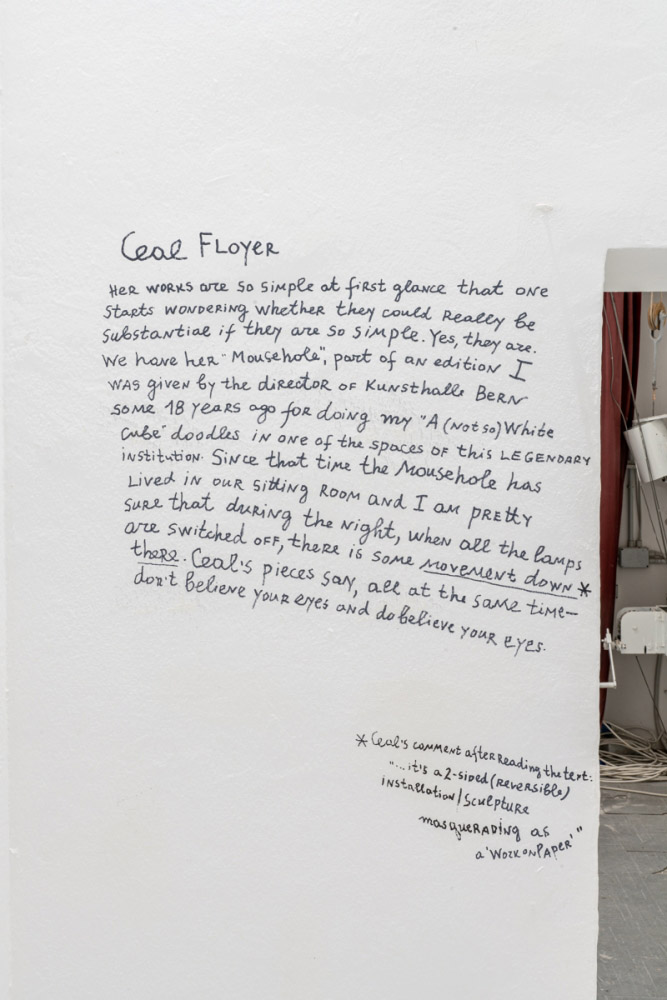 Ceal Floyer
Her works are so simple at first glance that one
starts wondering whether they could really be
substantial if they are so simple. Yes, they are.
We have her "Mousehole", part of an edition I
was given by the director of Kunsthalle Bern
some 18 years ago for doing my "A (not so) White
Cube" doodles in one of the spaces of this LEGENDARY
institution. Since that time the Mousehole has
lived in our sitting room and I am pretty
sure that during the night, when all the lamps
are switched off, there is some movement down*
there. Ceal's pieces say, all at the same time–
don't believe your eyes and do believe your eyes.
* Ceal's comment after reading the text:
"...it's a 2-sided (reversible)
installation/sculpture
masquerading as
a 'work on paper'"